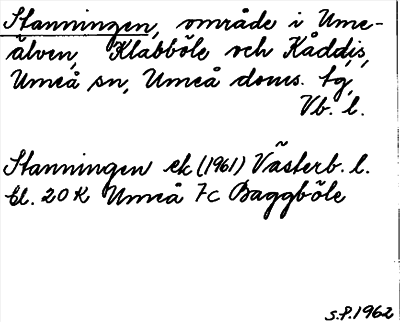 Stanningen, område i Ume-
älven, Klabböle och Kåddis,
Umeå sn, Umeå doms. tg,
Vb. l.
Stanningen ek (1961) Västerb. l.
bl. 20 K Umeå 7c Baggböle
S.P. 1962